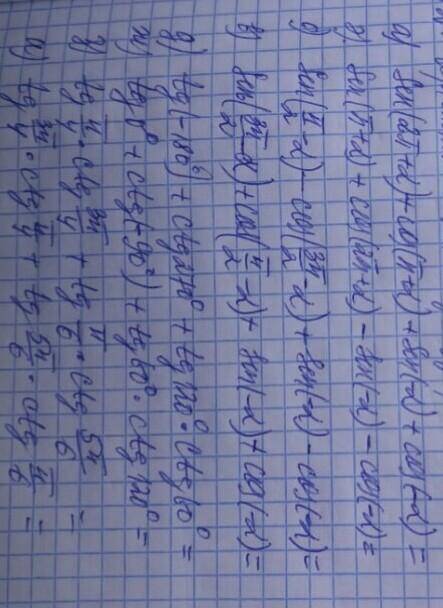 а) sin(2π+α)+cos(π+α)+sin(-α)+cos(-α)=
б) sin(π+α)+cos(2π+α)-sin(-α)-cos(-α)=
sin(π/2-α)-cos(3π/2-α)+sin(-α)-cos(-α)=
sin(3π/2-α)+cos(π/2-α)+sin(-α)+cos(-α)=
tg(-180°)+ctg240°+tg120°·ctg60°=
tg0°+ctg(-90°)+tg60°·ctg120°=
tg π/4·ctg 3π/4+tg π/6·ctg 5π/6=
tg 3π/4·ctg π/4+tg 5π/6·ctg π/6=